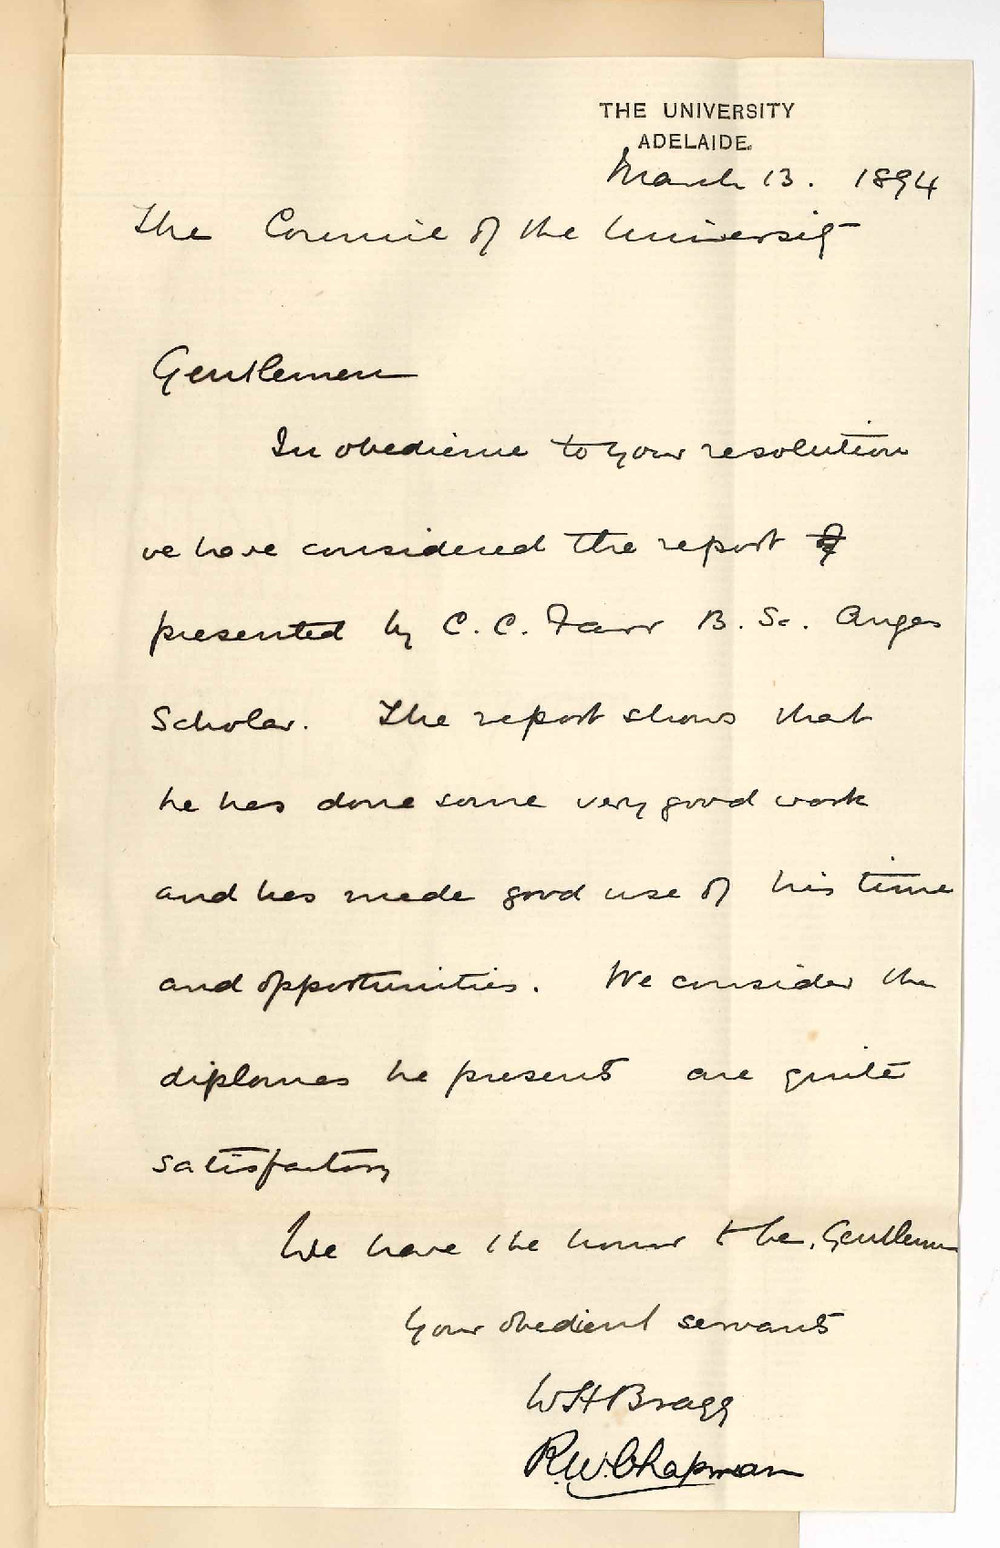 THE UNIVERSITY
ADELAIDE.
March 13. 1894
The Council of the University
Gentlemen
In obedience to your resolution
we have considered the report of
presented by C. C. Farr B. Sc. Angas
Scholar. The report shows that
he has done some very good work
and has made good use of his time
and opportunities. We consider the
diplomas he presents are quite
satisfactory
We have the honor to be, Gentlemen
Your obedient servants
WH Bragg
R.W. Chapman